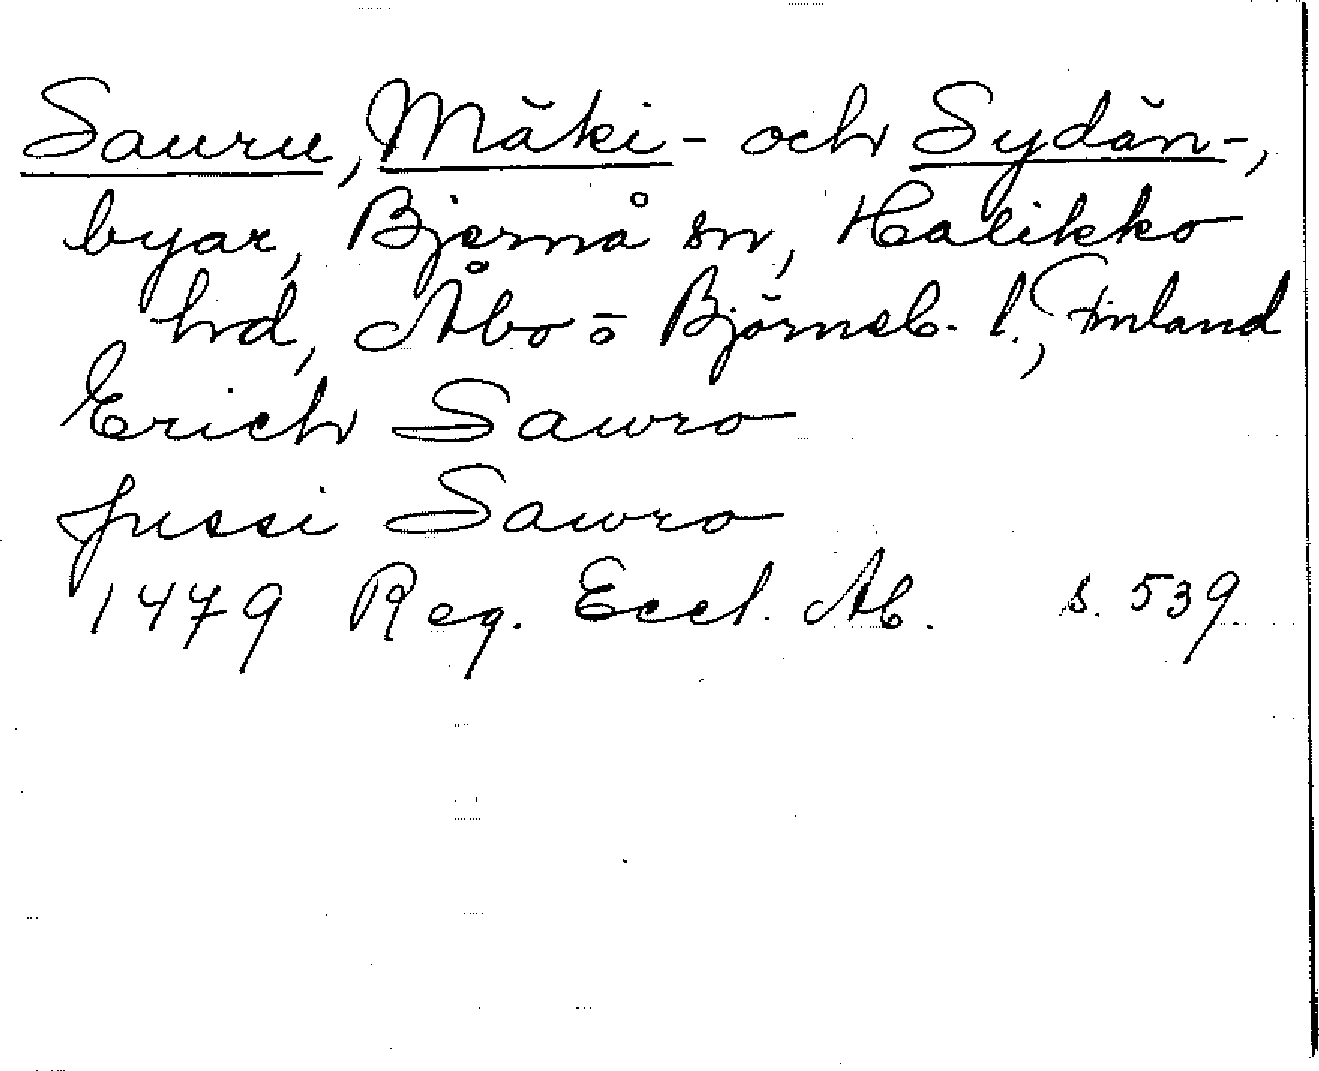 Sauru, Mäki- och Sydän-,
byar, Bjernå sn, Halikko
hrd, Åbo o Björneb. l., Finland
Erich Sawro
Jussi Sawro
1479 Reg. Eccl. Ab. s. 539.